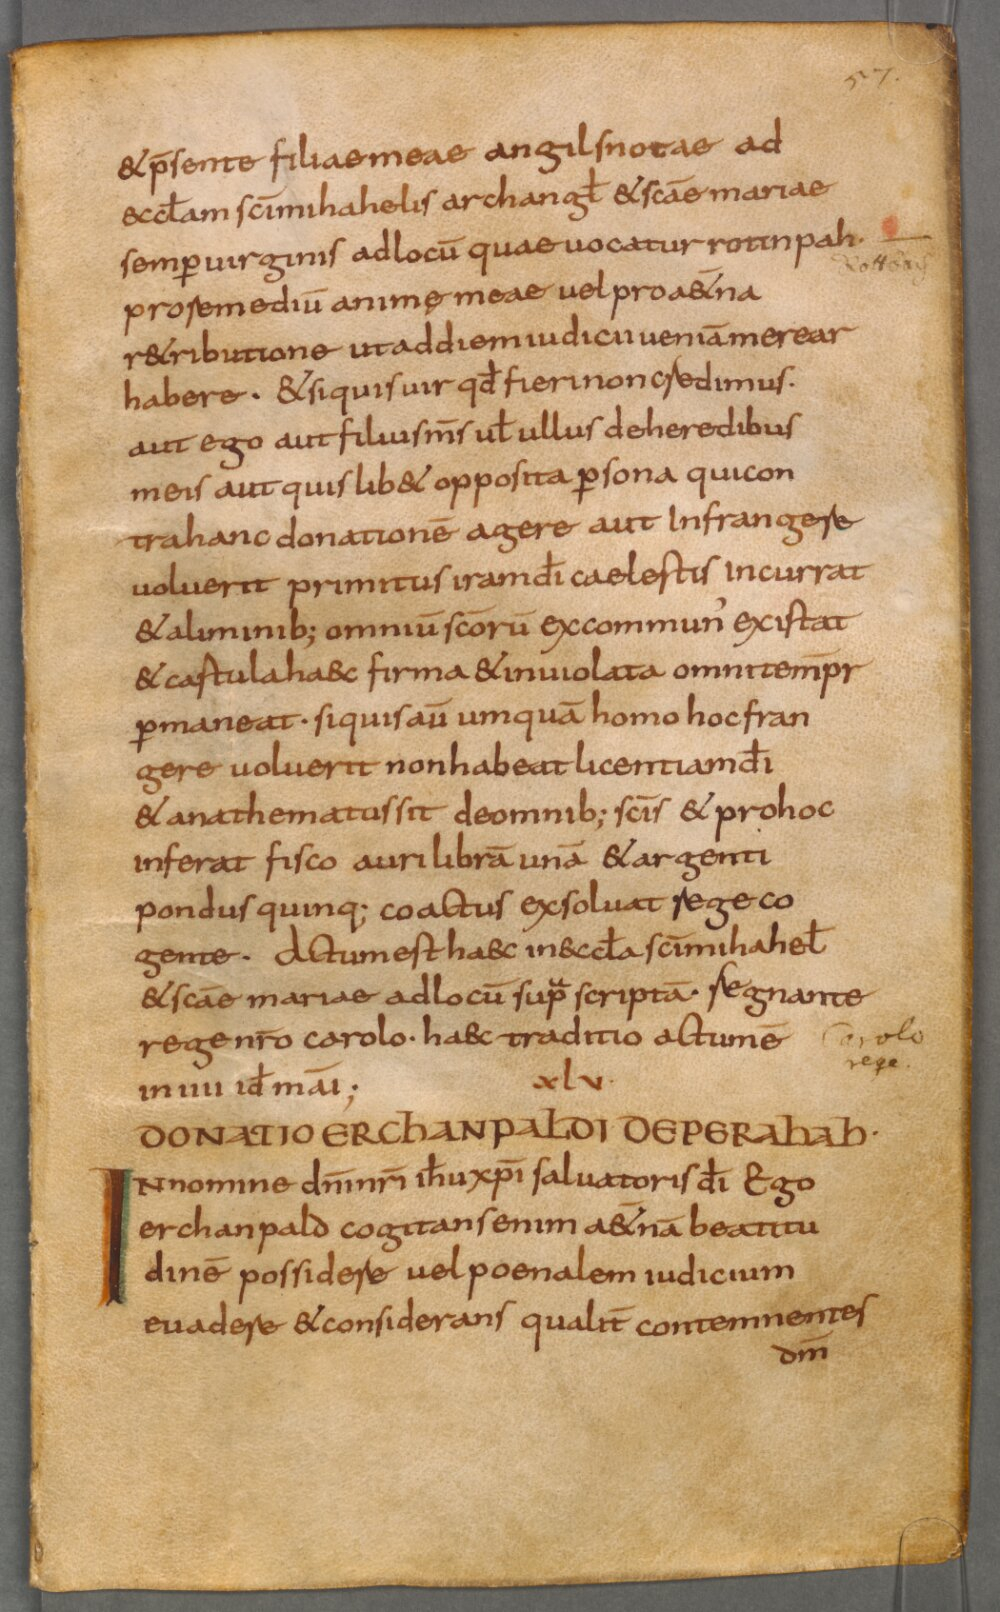 57.
& p̄sente filiae meae angilsnotae ad
eccl̄am scīmihahelis archangl̄ & scāe mariae
semp uirginis ad locū quae uocatur rotinpah.
pro remediū animę meae uel pro a&̄na
r&ributione ut ad diem iudicii ueniā merear
habere. & siquis uir qd̄ fieri non credimus.
aut ego aut filius m̄s ul̄ ullus de heredibus
meis aut quis lib& opposita psona qui con
tra hanc donationē agere aut Infrangere
uoluerit primitus iram dī caelestis Incurrat
& a liminib; omniū scōrū excommun' existat
& cartula haec firma & inuiolata omni temp̄r
pmaneat. siquis aū umquā homo hoc fran
gere uoluerit non habeat licentiam dī
& anathematus sit de omnib; scīs & pro hoc
inferat fisco auri librā unā & argenti
pondus quinq; coactus exsoluat rege co
gente. Actum est haec in eccl̄a scīmihahel̄
& scāe mariae ad locū supra scriptā. regnante
rege nr̄o carolo. haec traditio actum ē
Carolo
rege.
in iiii id̄ māi;
xlv.
DONATIO ERCHANPALDI DE PERAHAH.
IN nomine dn̄i nr̄i ih̄u xp̄i saluatoris dī Ego
erchanpald cogitans enim a&̄nā beatitu
dinē possidere uel poenalem iudicium
euadere & considerans qualit̄ contemnentes
dm̄